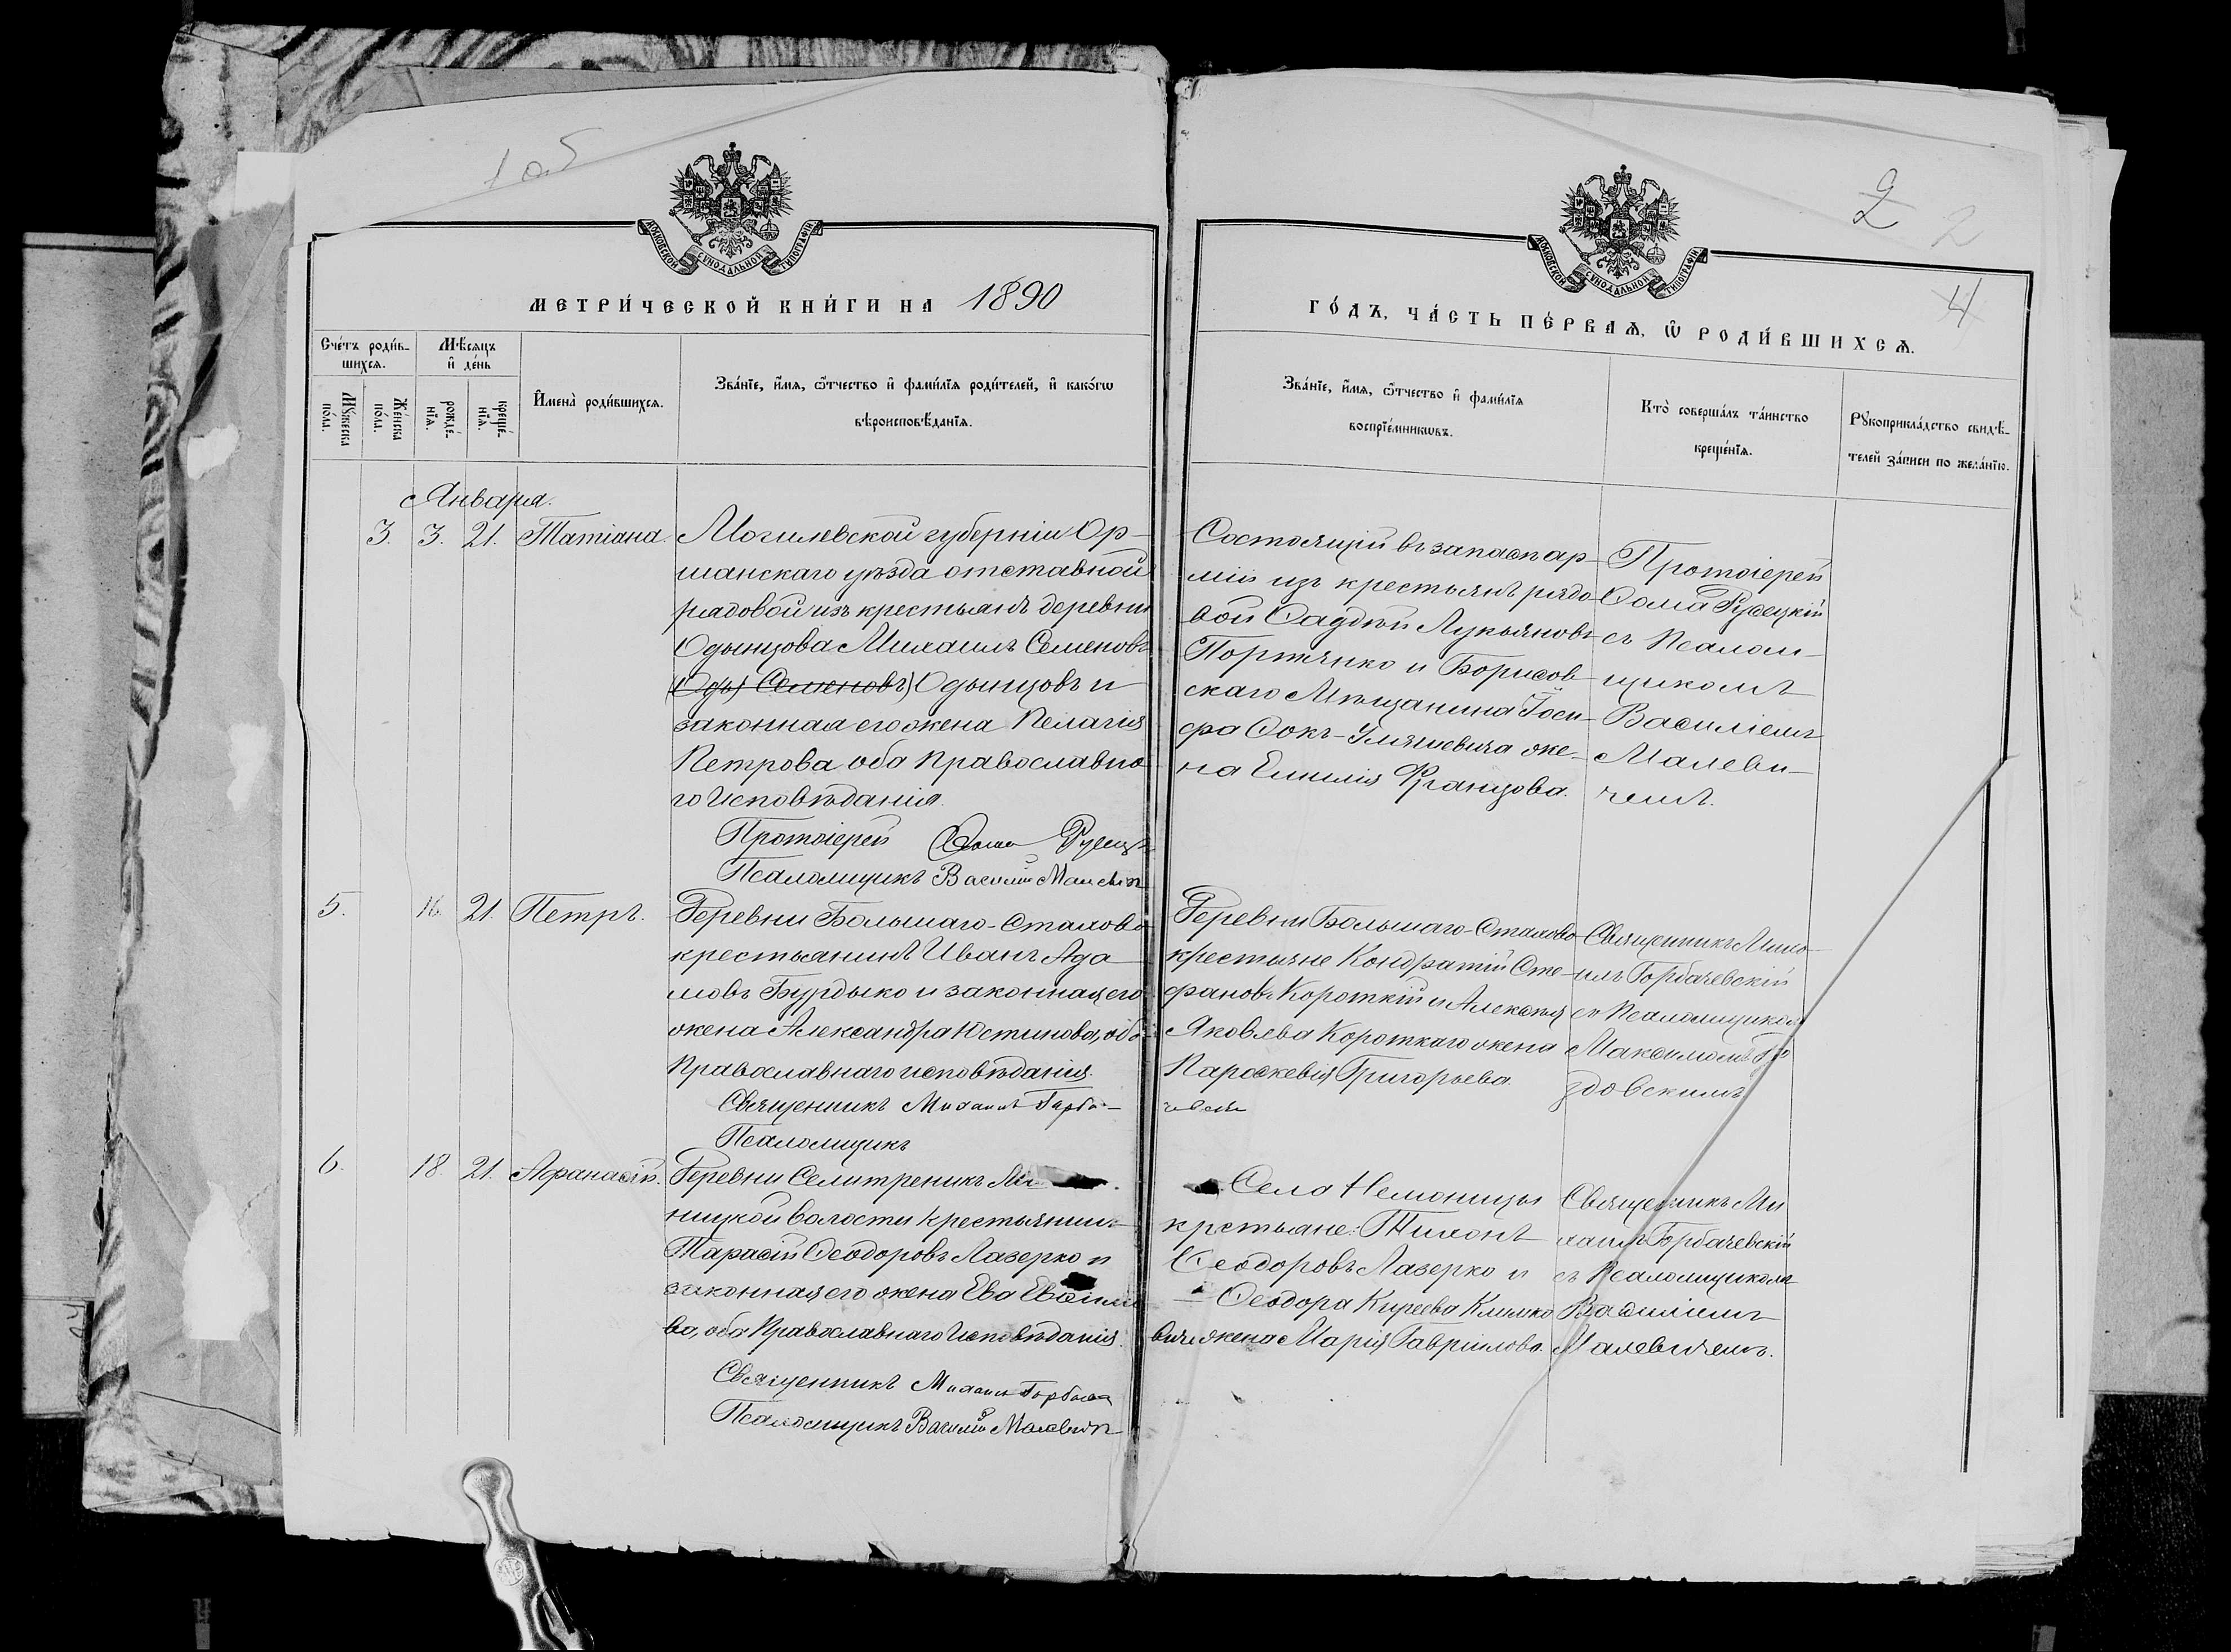 1 об
МОСКОВСКОЙ СѴНОДАЛЬНОЙ ТИПОГРАФІИ
МЕТРИ́ЧЕСКОЙ КНИ́ГИ НА 1890
Сче́тъ роди́в-
шихсѧ.
Мѣ́сѧцъ
и҆ де́нь
Мꙋ́жеска
по́ла.
Же́нска
по́ла.
рожде́-
нїѧ.
креще́-
нїѧ.
И҆мена̀ роди́вшихсѧ.
Зва́нїе, и҆́мѧ, ѻ҆́тчество и҆ фами́лїѧ роди́телей, и҆ како́гѡ
вѣроисповѣ́данїѧ.
Января.
3. 3. 21. Татіана.
Могилевской губерніи Ор-
шанскаго уѣзда отставной
рядовой изъ крестьянъ деревни
Одынцова Михаилъ Семеновъ
(Оды Семеновъ) Одынцовъ и
законная его жена Пелагія
Петрова, оба Православна-
го Исповѣданія.
Протоіерей Ѳома Русецк
Псаломщикъ Василій Малевич
5. 16. 21. Петръ.
Деревни Большаго-Стахова
крестьянинъ Иванъ Ада-
мовъ Бурдыко и законная его
жена Александра Юстинова, оба
Православнаго исповѣданія.
Священникъ Михаилъ Горба-
Псаломщикъ
6. 18. 21. Аѳанасій.
Деревни Селитреникъ
ницкой волости крестьянинъ
Тарасій Ѳеодоровъ Лазерко и
законная его жена Ева
ва, оба Православнаго Исповѣданія.
Священникъ Михаилъ Горбач
Псаломщикъ Василій Малевич
2
2
4
МОСКОВСКОЙ СѴНОДАЛЬНОЙ ТИПОГРАФІИ
ГО́ДЪ, ЧА́СТЬ ПЕ́РВАѦ, Ѽ РОДИ́ВШИХСѦ.
Зва́нїе, и҆́мѧ, ѻ҆́тчество и҆ фами́лїѧ
воспрїе́мникѡвъ.
Кто̀ соверша́лъ та́инство
креще́нїѧ.
Рꙋкоприкла́дство свидѣ́-
телей за́писи по жела́нїю.
Состоящій въ запасѣ ар-
міи изъ крестьянъ рядо-
вой Ѳаддѣй Лукьяновъ
Портянко и Борисов-
скаго Мѣщанина Іоси-
фа Фокъ-Улдяшевича же-
на Емилія Францова.
Протоіерей
Ѳома Русецкій
съ Псалом-
щикомъ
Василіемъ
Малеви-
чемъ.
Деревни Большаго-Стахова
крестьяне Кондратій Сте-
фановъ Короткій и Алексѣя
Яковлева Короткаго жена
Параскевія Григорьева.
чевскій
Священникъ Миха-
илъ Горбачевскій
съ Псаломщикомъ
Максимомъ
здовскимъ
Села Немоницы
крстьяне: Тихонъ
Ѳеодоровъ Лазерко и
Ѳеодора Киреева Климко-
вича жена Марія Гаврилова.
Священникъ Ми-
хаилъ Горбачевскій
съ Псаломщикомъ
Василіемъ
Малевичемъ.